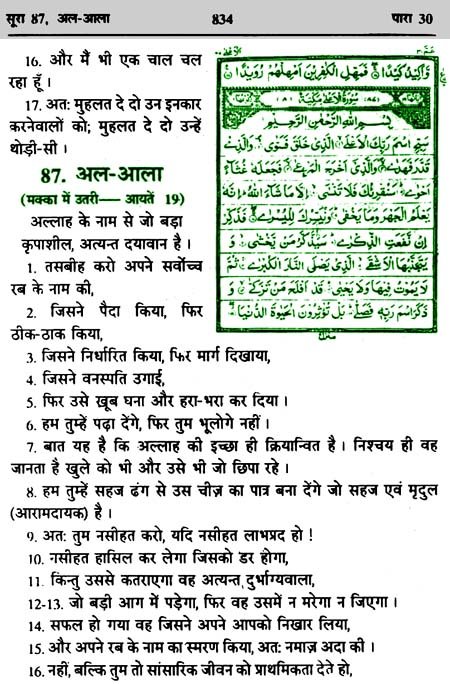 सूरा 87, अल-आला 834 पारा 30
16. और मैं भी एक चाल चल
रहा हूँ ।
17. अतः मुहलत दे दो उन इनकार
करनेवालों को; मुहलत दे दो उन्हें
थोड़ी-सी ।
87. अल-आला
(मक्का में उतरी— आयतें 19)
अल्लाह के नाम से जो बड़ा
कृपाशील, अत्यन्त दयावान है ।
1. तसबीह करो अपने सर्वोच्च
रब के नाम की,
2. जिसने पैदा किया, फिर
ठीक-ठाक किया,
وَّاَكِيْدُ كَيْدًا فَمَهِّلِ الْكٰفِرِيْنَ اَمْهِلْهُمْ رُوَيْدًا
سُوْرَةُ الْاَعْلٰى مَكِّيَّةٌ
بِسْمِ اللهِ الرَّحْمٰنِ الرَّحِيْمِ
سَبِّحِ اسْمَ رَبِّكَ الْاَعْلَى الَّذِيْ خَلَقَ فَسَوّٰى وَالَّذِيْ
قَدَّرَ فَهَدٰى وَالَّذِيْ اَخْرَجَ الْمَرْعٰى فَجَعَلَهٗ غُثَآءً
اَحْوٰى سَنُقْرِئُكَ فَلَا تَنْسٰى اِلَّا مَا شَآءَ اللهُ اِنَّهٗ
يَعْلَمُ الْجَهْرَ وَمَا يَخْفٰى وَنُيَسِّرُكَ لِلْيُسْرٰى فَذَكِّرْ
اِنْ نَّفَعَتِ الذِّكْرٰى سَيَذَّكَّرُ مَنْ يَّخْشٰى وَ
يَتَجَنَّبُهَا الْاَشْقَى الَّذِيْ يَصْلَى النَّارَ الْكُبْرٰى ثُمَّ
لَا يَمُوْتُ فِيْهَا وَلَا يَحْيٰى قَدْ اَفْلَحَ مَنْ تَزَكّٰى وَ
ذَكَرَ اسْمَ رَبِّهٖ فَصَلّٰى بَلْ تُؤْثِرُوْنَ الْحَيٰوةَ الدُّنْيَا
3. जिसने निर्धारित किया, फिर मार्ग दिखाया,
4. जिसने वनस्पति उगाई,
5. फिर उसे ख़ूब घना और हरा-भरा कर दिया ।
6. हम तुम्हें पढ़ा देंगे, फिर तुम भूलोगे नहीं ।
7. बात यह है कि अल्लाह की इच्छा ही क्रियान्वित है । निश्चय ही वह
जानता है खुले को भी और उसे भी जो छिपा रहे ।
8. हम तुम्हें सहज ढंग से उस चीज़ का पात्र बना देंगे जो सहज एवं मृदुल
(आरामदायक) है ।
9. अतः तुम नसीहत करो, यदि नसीहत लाभप्रद हो !
10. नसीहत हासिल कर लेगा जिसको डर होगा,
11. किन्तु उससे कतराएगा वह अत्यन्त दुर्भाग्यवाला,
12-13. जो बड़ी आग में पड़ेगा, फिर वह उसमें न मरेगा न जिएगा ।
14. सफल हो गया वह जिसने अपने आपको निखार लिया,
15. और अपने रब के नाम का स्मरण किया, अतः नमाज़ अदा की ।
16. नहीं, बल्कि तुम तो सांसारिक जीवन को प्राथमिकता देते हो,